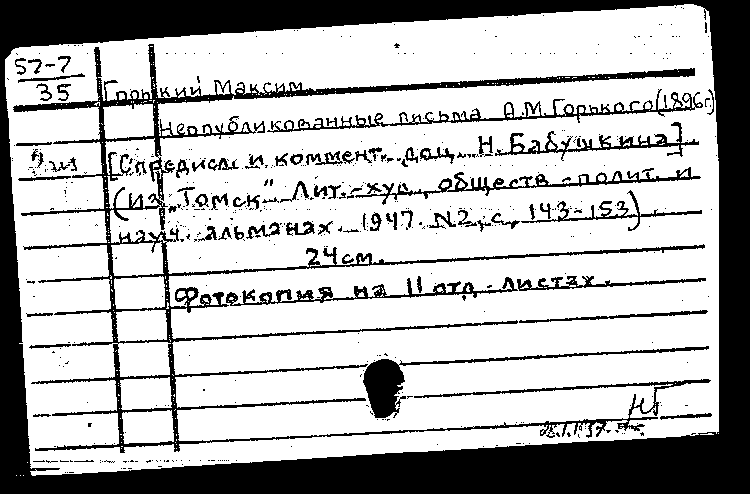 57-7
35
Горький Максим
Неопубликованные письма А.М. Горького (1896 г.)
[С предисл. и коммент. доц. Н. Бабушкина].
(Из „Томск" Лит.-худ., обществ.-полит. и
науч. альманах. 1947. N2, с. 143-153).
24 см.
Фотокопия на 11 отд. листах.
НБ